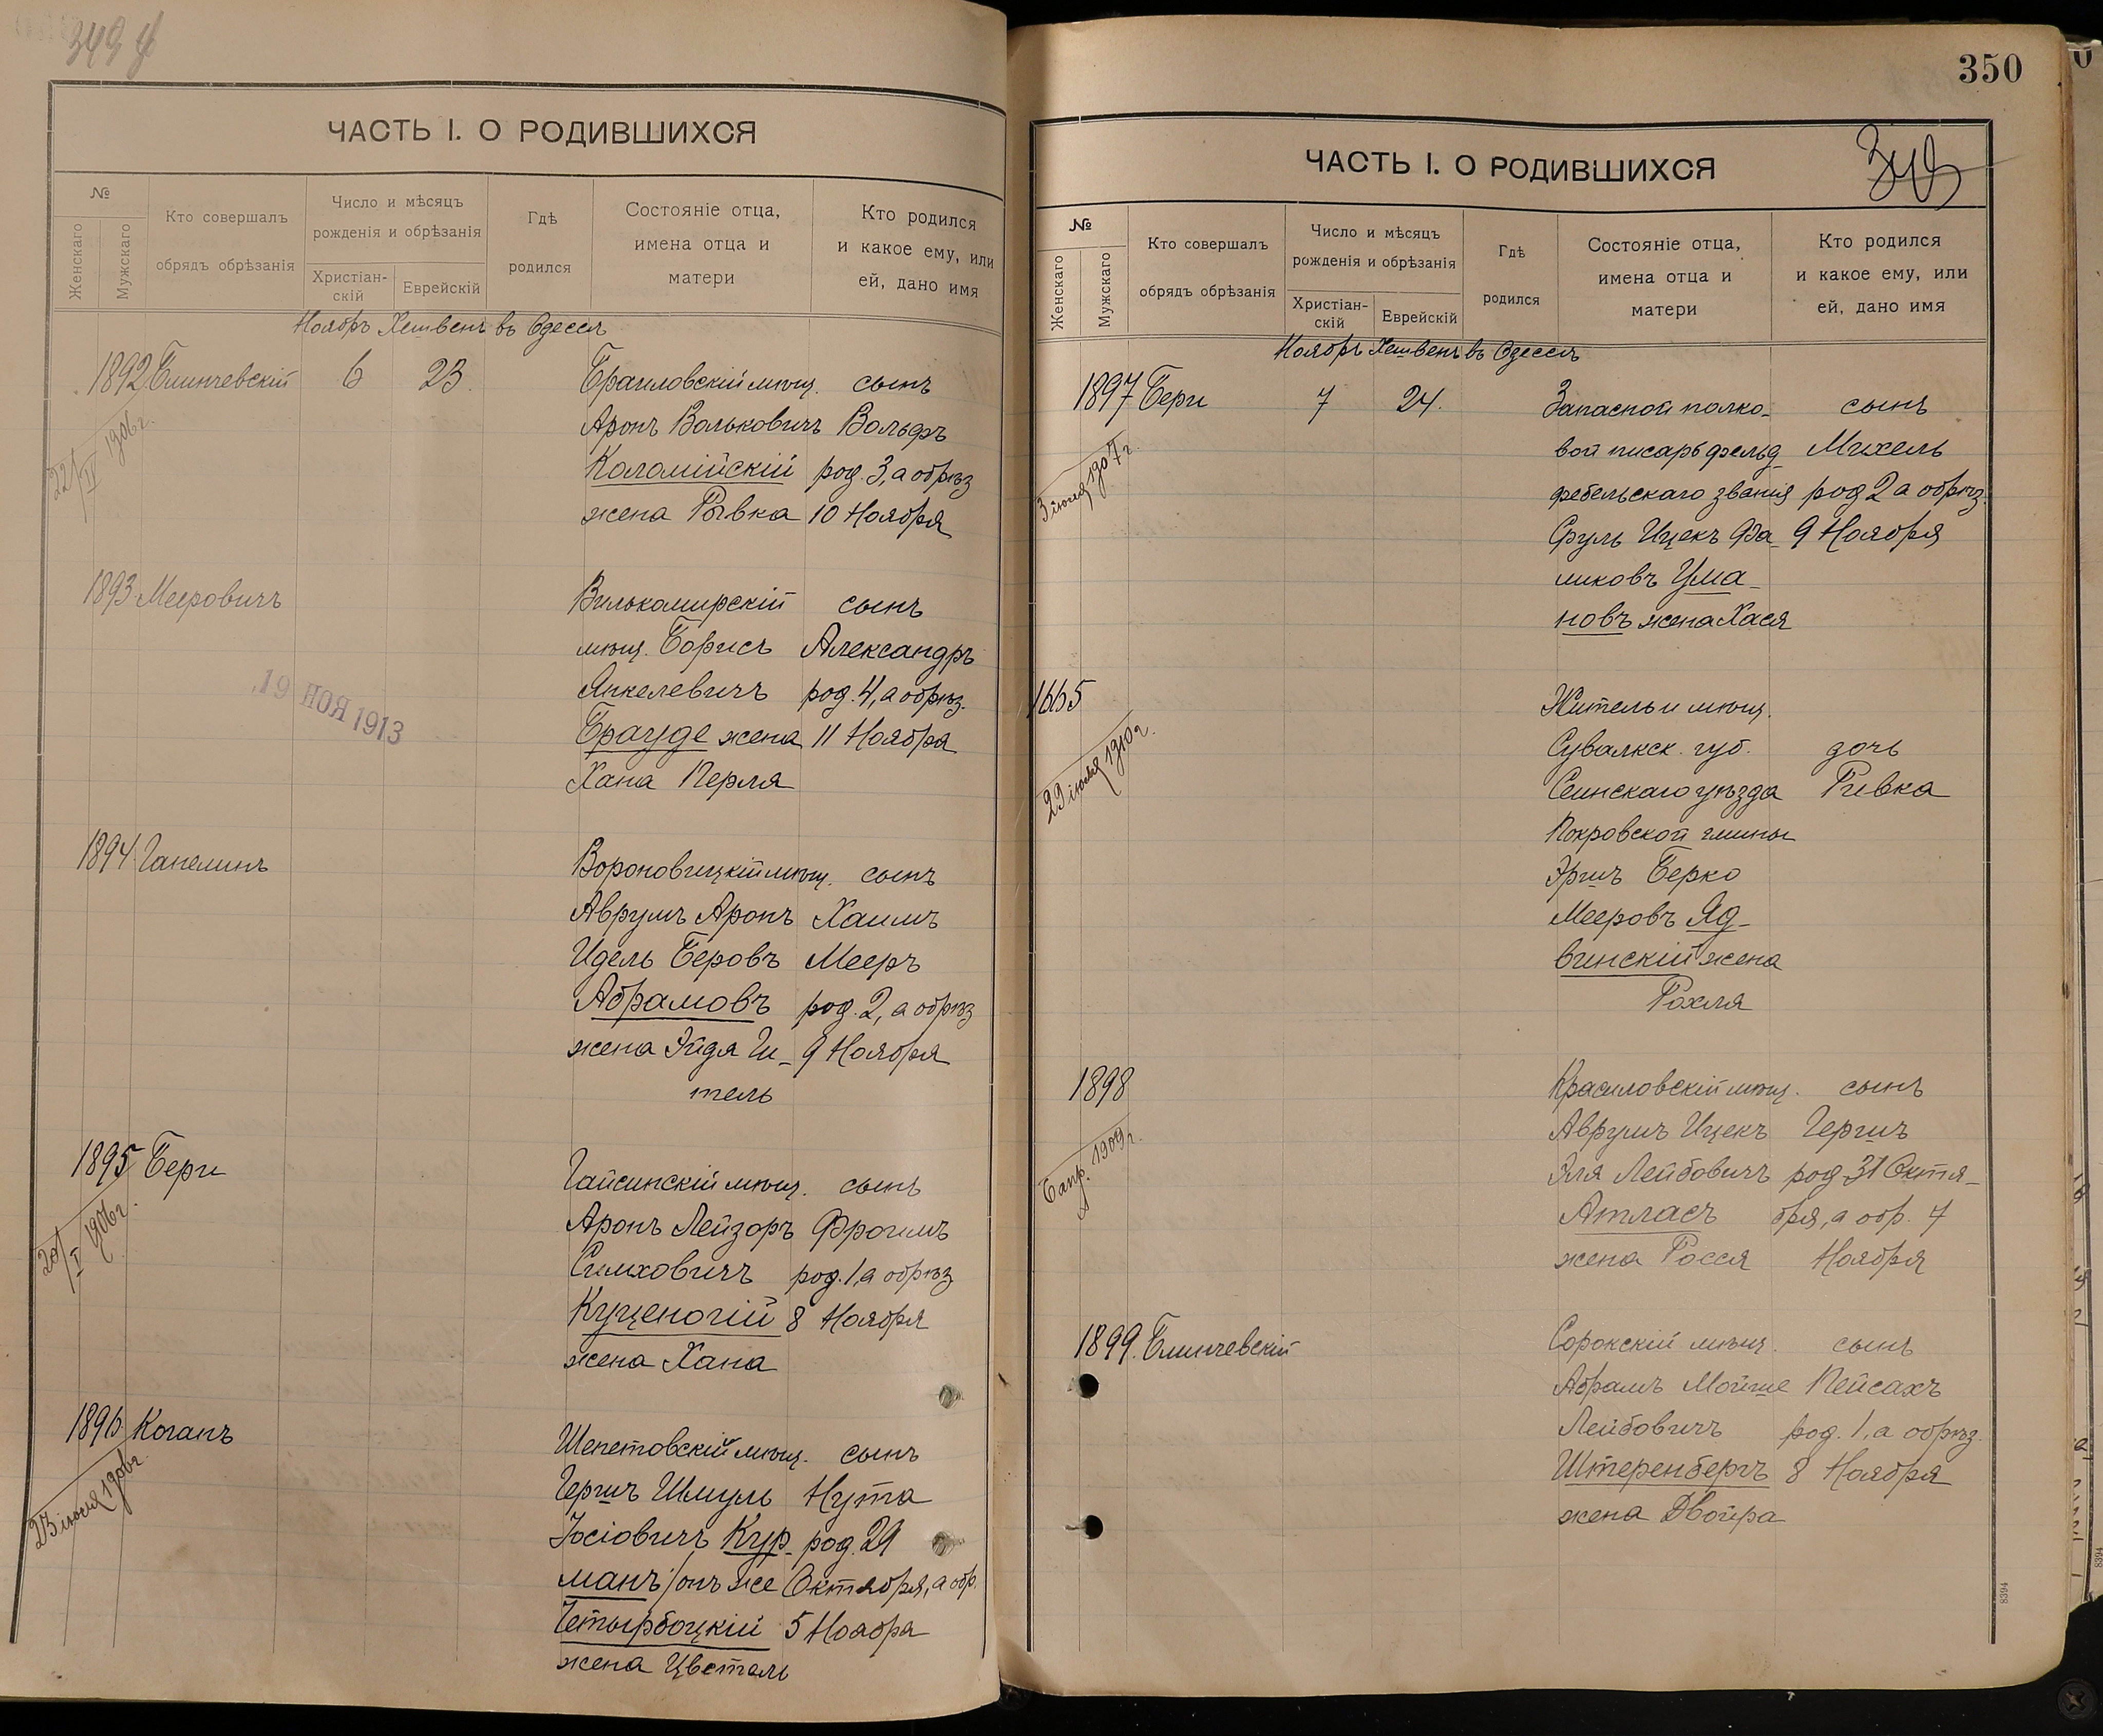 ЧАСТЬ I. О РОДИВШИХСЯ
№
Женскаго
Мужскаго
Кто совершалъ
обрядъ обрѣзанія
Число и мѣсяцъ
рожденія и обрѣзанія
Христіан-
скій
Еврейскій
Гдѣ
родился
Состояніе отца,
имена отца и
матери
Кто родился
и какое ему, или
ей, дано имя
Ноябрь Хешвенъ въ Одессѣ
1892 Блинчевскій 6 23 Браиловскій мѣщ. сынъ
Аронъ Вольковичъ Вольфъ
Коломійскій род. 3, а обрѣз
жена Рывка 10 Ноября
22/IV 1906 г.
1893 Мееровичъ Вилькомирскій сынъ
мѣщ. Борисъ Александръ
Янкелевичъ род. 4, а обрѣз.
Брауде жена 11 Ноября
Хана Перля
19 НОЯ 1913
1894 Ганелинъ Вороновицкій мѣщ. сынъ
Аврумъ Аронъ Хаимъ
Идель Беровъ Мееръ
Абрамовъ род. 2, а обрѣз
жена Эйдя Ги- 9 Ноября
тель
1895 Бери Гайсинскій мѣщ. сынъ
Аронъ Лейзоръ Фроимъ
Симховичъ род. 1, а обрѣз
Куценогій 8 Ноября
жена Хана
20/I 1906 г.
1896 Коганъ Шепетовскій мѣщ. сынъ
Гершъ Шмуль Нута
Іосіовичъ Кур- род. 29
манъ/онъ же Октября, а обр.
Четырбоцкій 5 Ноября
жена Цветель
23 іюля 1906 г.
350
ЧАСТЬ I. О РОДИВШИХСЯ
№
Женскаго
Мужскаго
Кто совершалъ
обрядъ обрѣзанія
Число и мѣсяцъ
рожденія и обрѣзанія
Христіан-
скій
Еврейскій
Гдѣ
родился
Состояніе отца,
имена отца и
матери
Кто родился
и какое ему, или
ей, дано имя
Ноябрь Хешвенъ въ Одессѣ
1897 Бери 7 24. Запасной полко- сынъ
вой писарь фельд- Михель
фебельскаго званія род 2 а обрѣз.
Сруль Ицекъ Фа- 9 Ноября
ликовъ Ума-
новъ жена Хася
1907 г.
1665 Житель и мѣщ.
Сувалкск. губ. дочь
Сеинскаго уѣзда Ривка
Покровской гмины
Эршъ Берко
Мееровъ Яд-
винскій жена
Рохля
1910 г.
1898 Красиловскій мѣщ. сынъ
Аврумъ Ицекъ Гершъ
Эля Лейбовичъ род 31 Октя-
Атласъ бря, а обр. 7
жена Рося Ноября
6 апр. 1909 г.
1899 Блинчевскій Сорокскій мѣщ. сынъ
Абрамъ Мойше Пейсахъ
Лейбовичъ род. 1, а обрѣз.
Штеренбергъ 8 Ноября
жена Двойра
8394